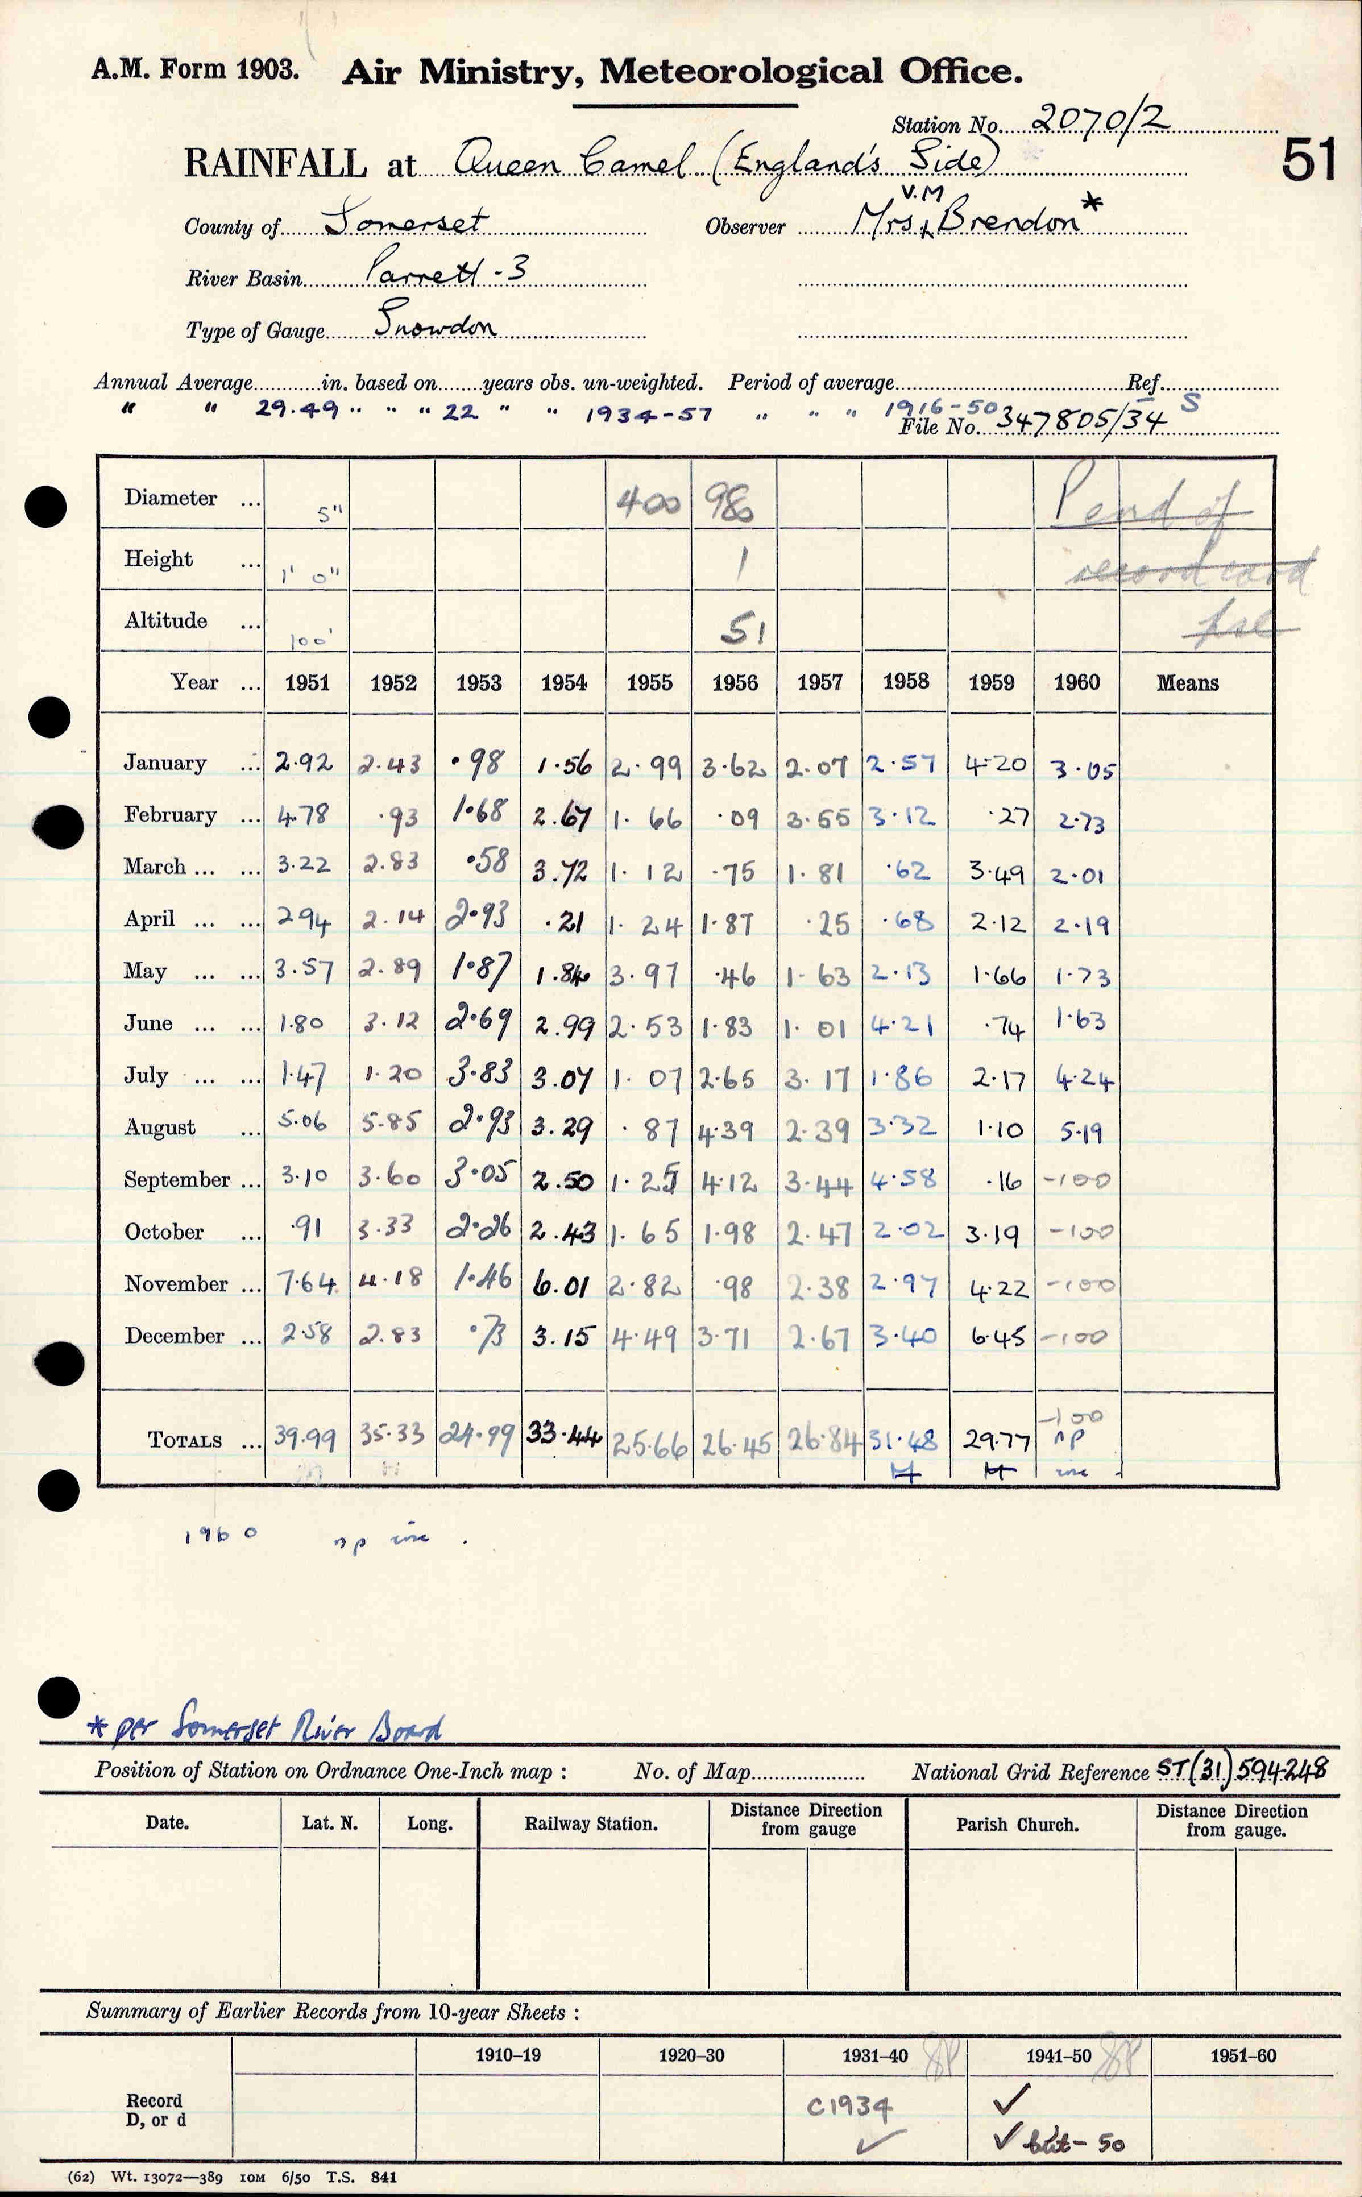 A.M. Form 1903. Air Ministry, Meteorological Office.
Station No. 2070/2
51
RAINFALL at Queen Camel (England's Side)
V.M
County of Somerset Observer Mrs. Brendon*
River Basin Parrett - 3
Type of Gauge Snowdon
Annual Average in. based on years obs. un-weighted. Period of average Ref.
" " 29.49 " " " 22 " " 1934-57 " " " 1916-50 S
File No. 347805/34
Diameter ... 5" 400 98
Height ... 1' 0" 1
Altitude ... 100' 51
Year ... 1951 1952 1953 1954 1955 1956 1957 1958 1959 1960 Means
January ... 2.92 2.43 .98 1.56 2.99 3.62 2.07 2.57 4.20 3.05
February ... 4.78 .93 1.68 2.67 1.66 .09 3.55 3.12 .27 2.73
March ... ... 3.22 2.83 .58 3.72 1.12 .75 1.81 .62 3.49 2.01
April ... ... 2.94 2.14 2.93 .21 1.24 1.87 .25 .68 2.12 2.19
May ... ... 3.57 2.89 1.87 1.84 3.97 .46 1.63 2.13 1.66 1.73
June ... ... 1.80 3.12 2.69 2.99 2.53 1.83 1.01 4.21 .74 1.63
July ... ... 1.47 1.20 3.83 3.07 1.07 2.65 3.17 1.86 2.17 4.24
August ... 5.06 5.85 2.93 3.29 .87 4.39 2.39 3.32 1.10 5.19
September ... 3.10 3.60 3.05 2.50 1.25 4.12 3.44 4.58 .16 -100
October ... .91 3.33 2.26 2.43 1.65 1.98 2.47 2.02 3.19 -100
November ... 7.64 4.18 1.46 6.01 2.82 .98 2.38 2.97 4.22 -100
December ... 2.58 2.83 .73 3.15 4.49 3.71 2.67 3.40 6.45 -100
-100
TOTALS ... 39.99 35.33 24.99 33.44 25.66 26.45 26.84 31.48 29.77 np
1960 np
* per Somerset River Board
Position of Station on Ordnance One-Inch map : No. of Map National Grid Reference ST(31)594248
Date. Lat. N. Long. Railway Station. Distance from gauge Direction Parish Church. Distance from gauge. Direction
Summary of Earlier Records from 10-year Sheets :
1910–19 1920–30 1931–40 1941–50 1951–60
Record C1934 ✓
D, or d ✓ ✓ but - 50
(62) Wt. 13072—389 10M 6/50 T.S. 841